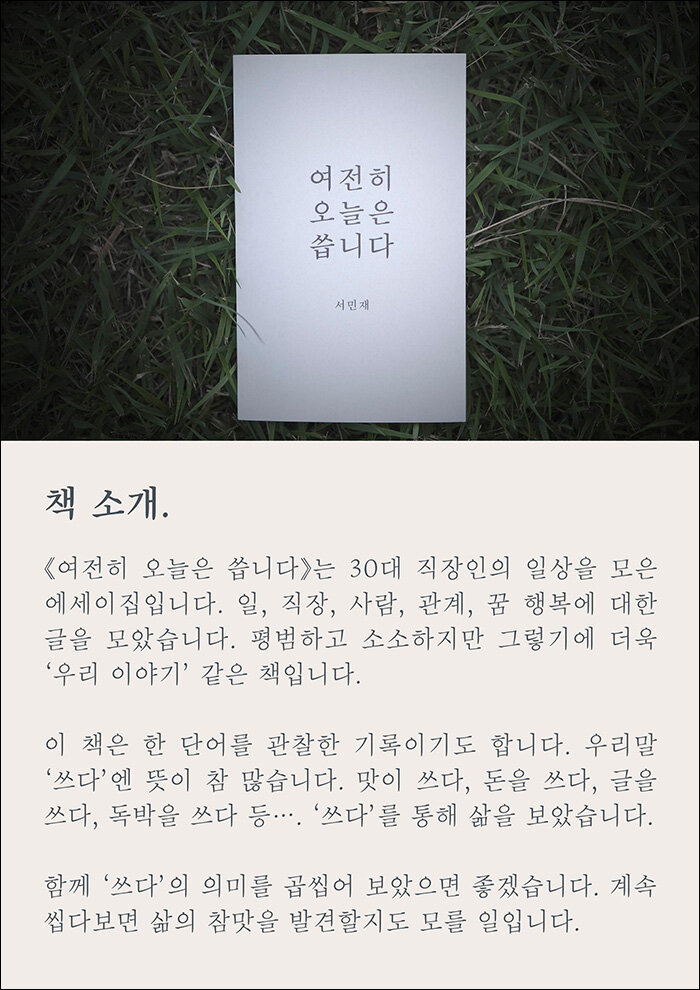 여전히
오늘은
씁니다
서민재
책 소개.
《여전히 오늘은 씁니다》는 30대 직장인의 일상을 모은
에세이집입니다. 일, 직장, 사람, 관계, 꿈 행복에 대한
글을 모았습니다. 평범하고 소소하지만 그렇기에 더욱
‘우리 이야기’ 같은 책입니다.
이 책은 한 단어를 관찰한 기록이기도 합니다. 우리말
‘쓰다’엔 뜻이 참 많습니다. 맛이 쓰다, 돈을 쓰다, 글을
쓰다, 독박을 쓰다 등…. ‘쓰다’를 통해 삶을 보았습니다.
함께 ‘쓰다’의 의미를 곱씹어 보았으면 좋겠습니다. 계속
씹다보면 삶의 참맛을 발견할지도 모를 일입니다.